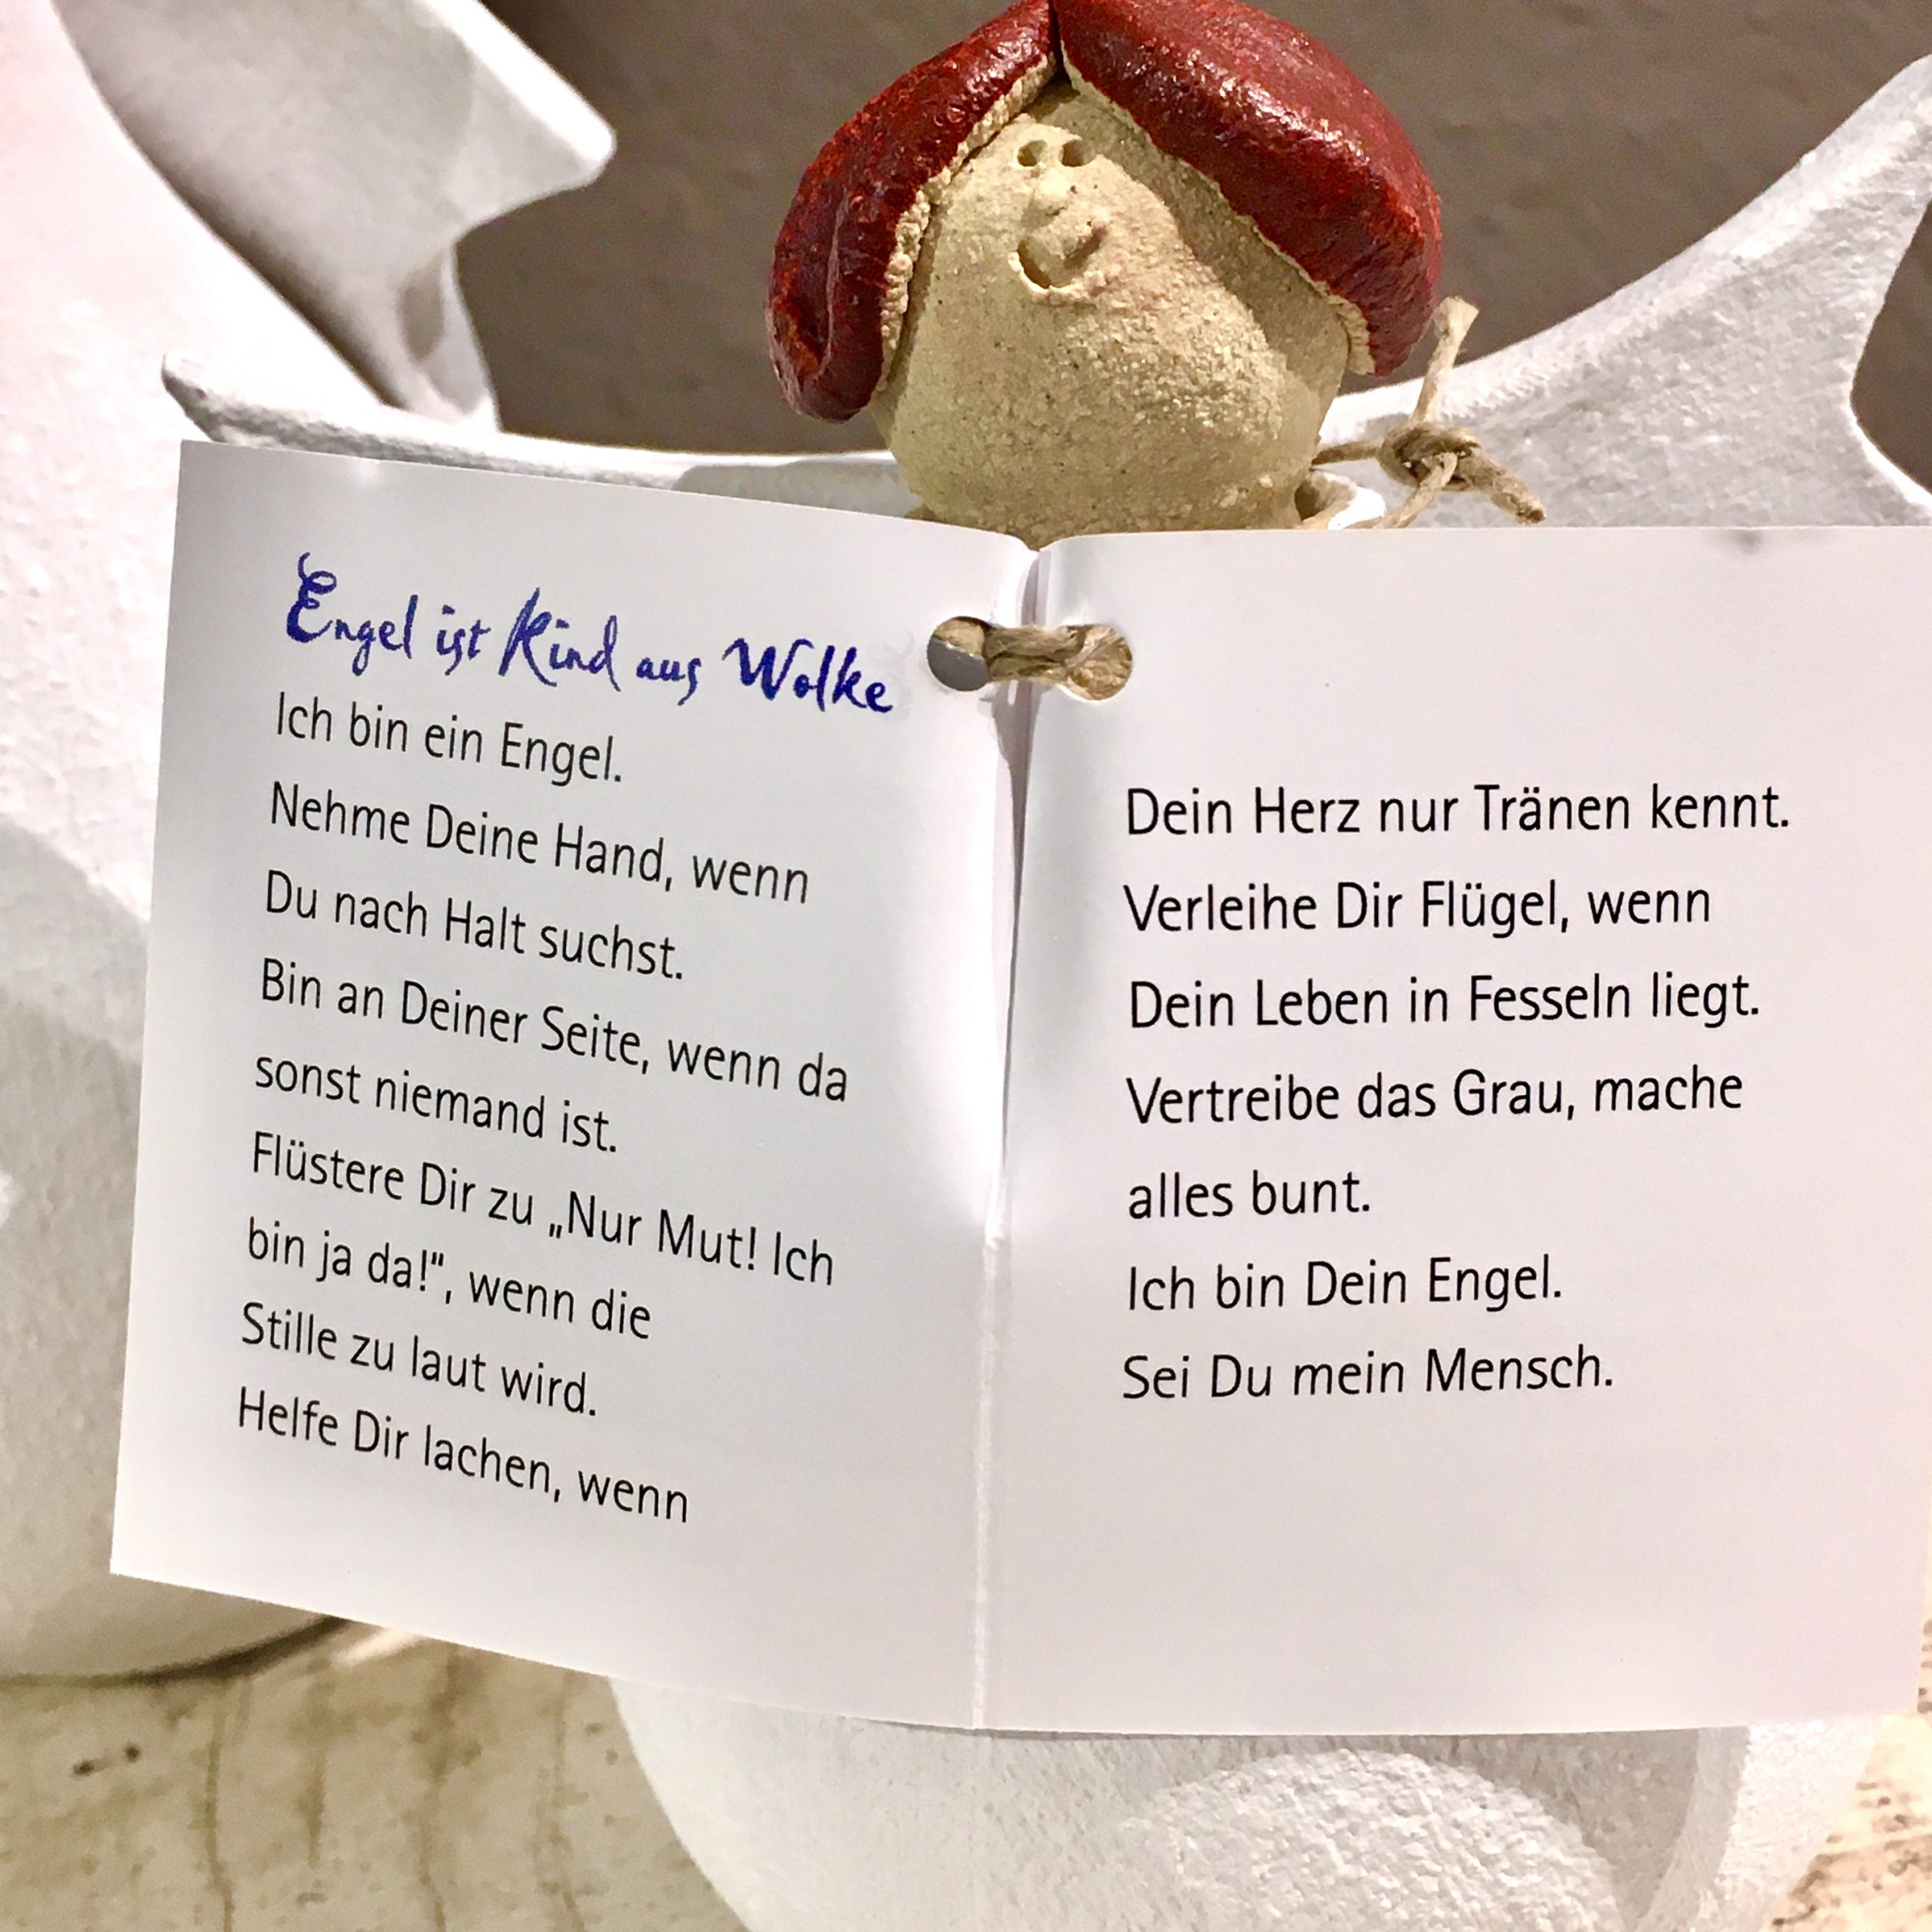 Engel ist Kind aus Wolke
Ich bin ein Engel.
Nehme Deine Hand, wenn
Du nach Halt suchst.
Bin an Deiner Seite, wenn da
sonst niemand ist.
Flüstere Dir zu „Nur Mut! Ich
bin ja da!“, wenn die
Stille zu laut wird.
Helfe Dir lachen, wenn
Dein Herz nur Tränen kennt.
Verleihe Dir Flügel, wenn
Dein Leben in Fesseln liegt.
Vertreibe das Grau, mache
alles bunt.
Ich bin Dein Engel.
Sei Du mein Mensch.